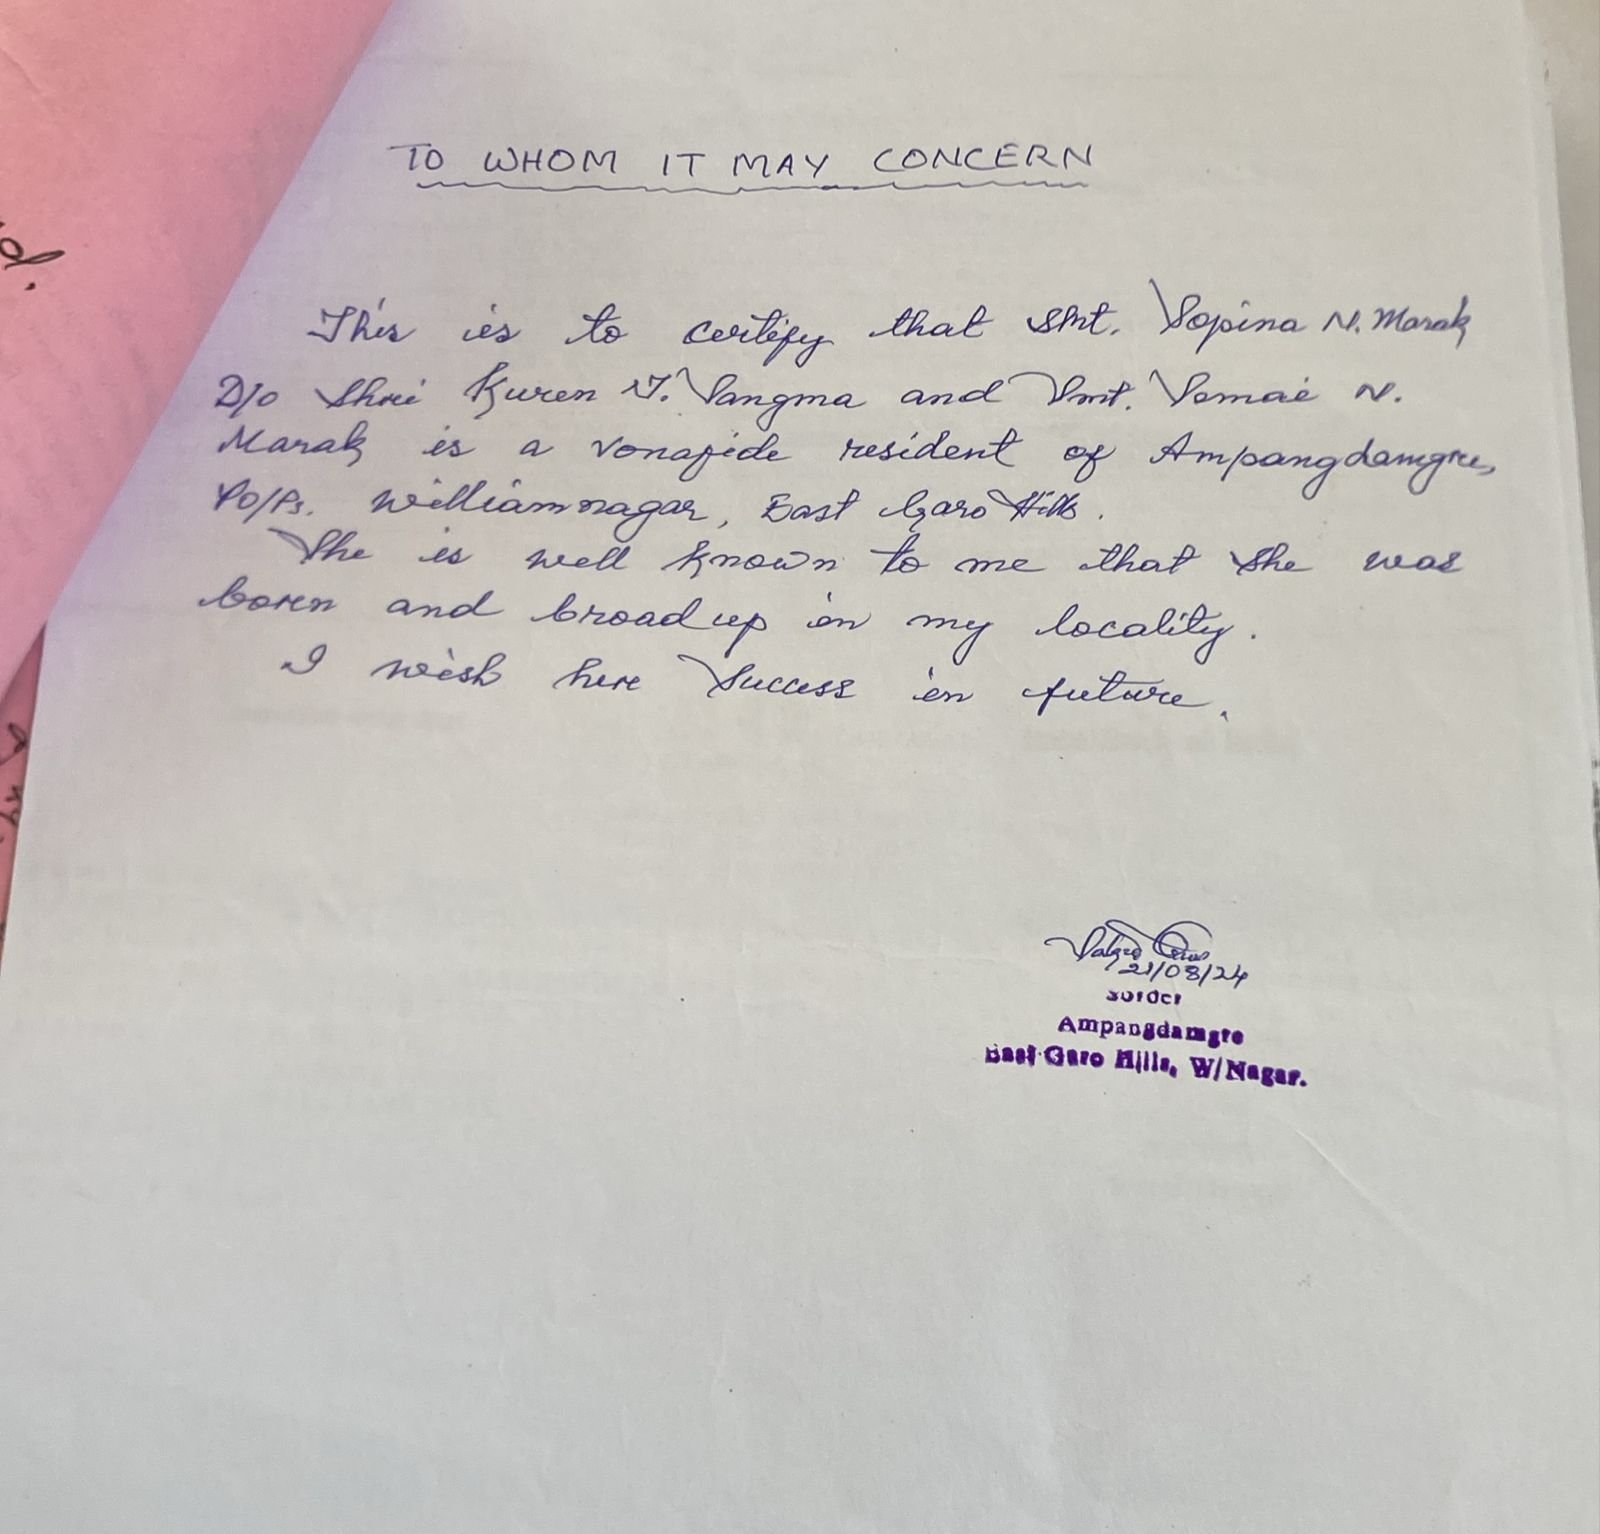 TO WHOM IT MAY CONCERN
This is to certify that Smt. Sopina N. Marak
D/o Shri Kuren T. Sangma and Smt. Somai N.
Marak is a vonafide resident of Ampangdamgre,
Po/Ps. Williamnagar, East Garo Hills.
She is well known to me that she was
boren and broad up in my locality.
I wish here success in future.
21/08/24
Sorder
Ampangdamgre
East Garo Hills, W/Nagar.